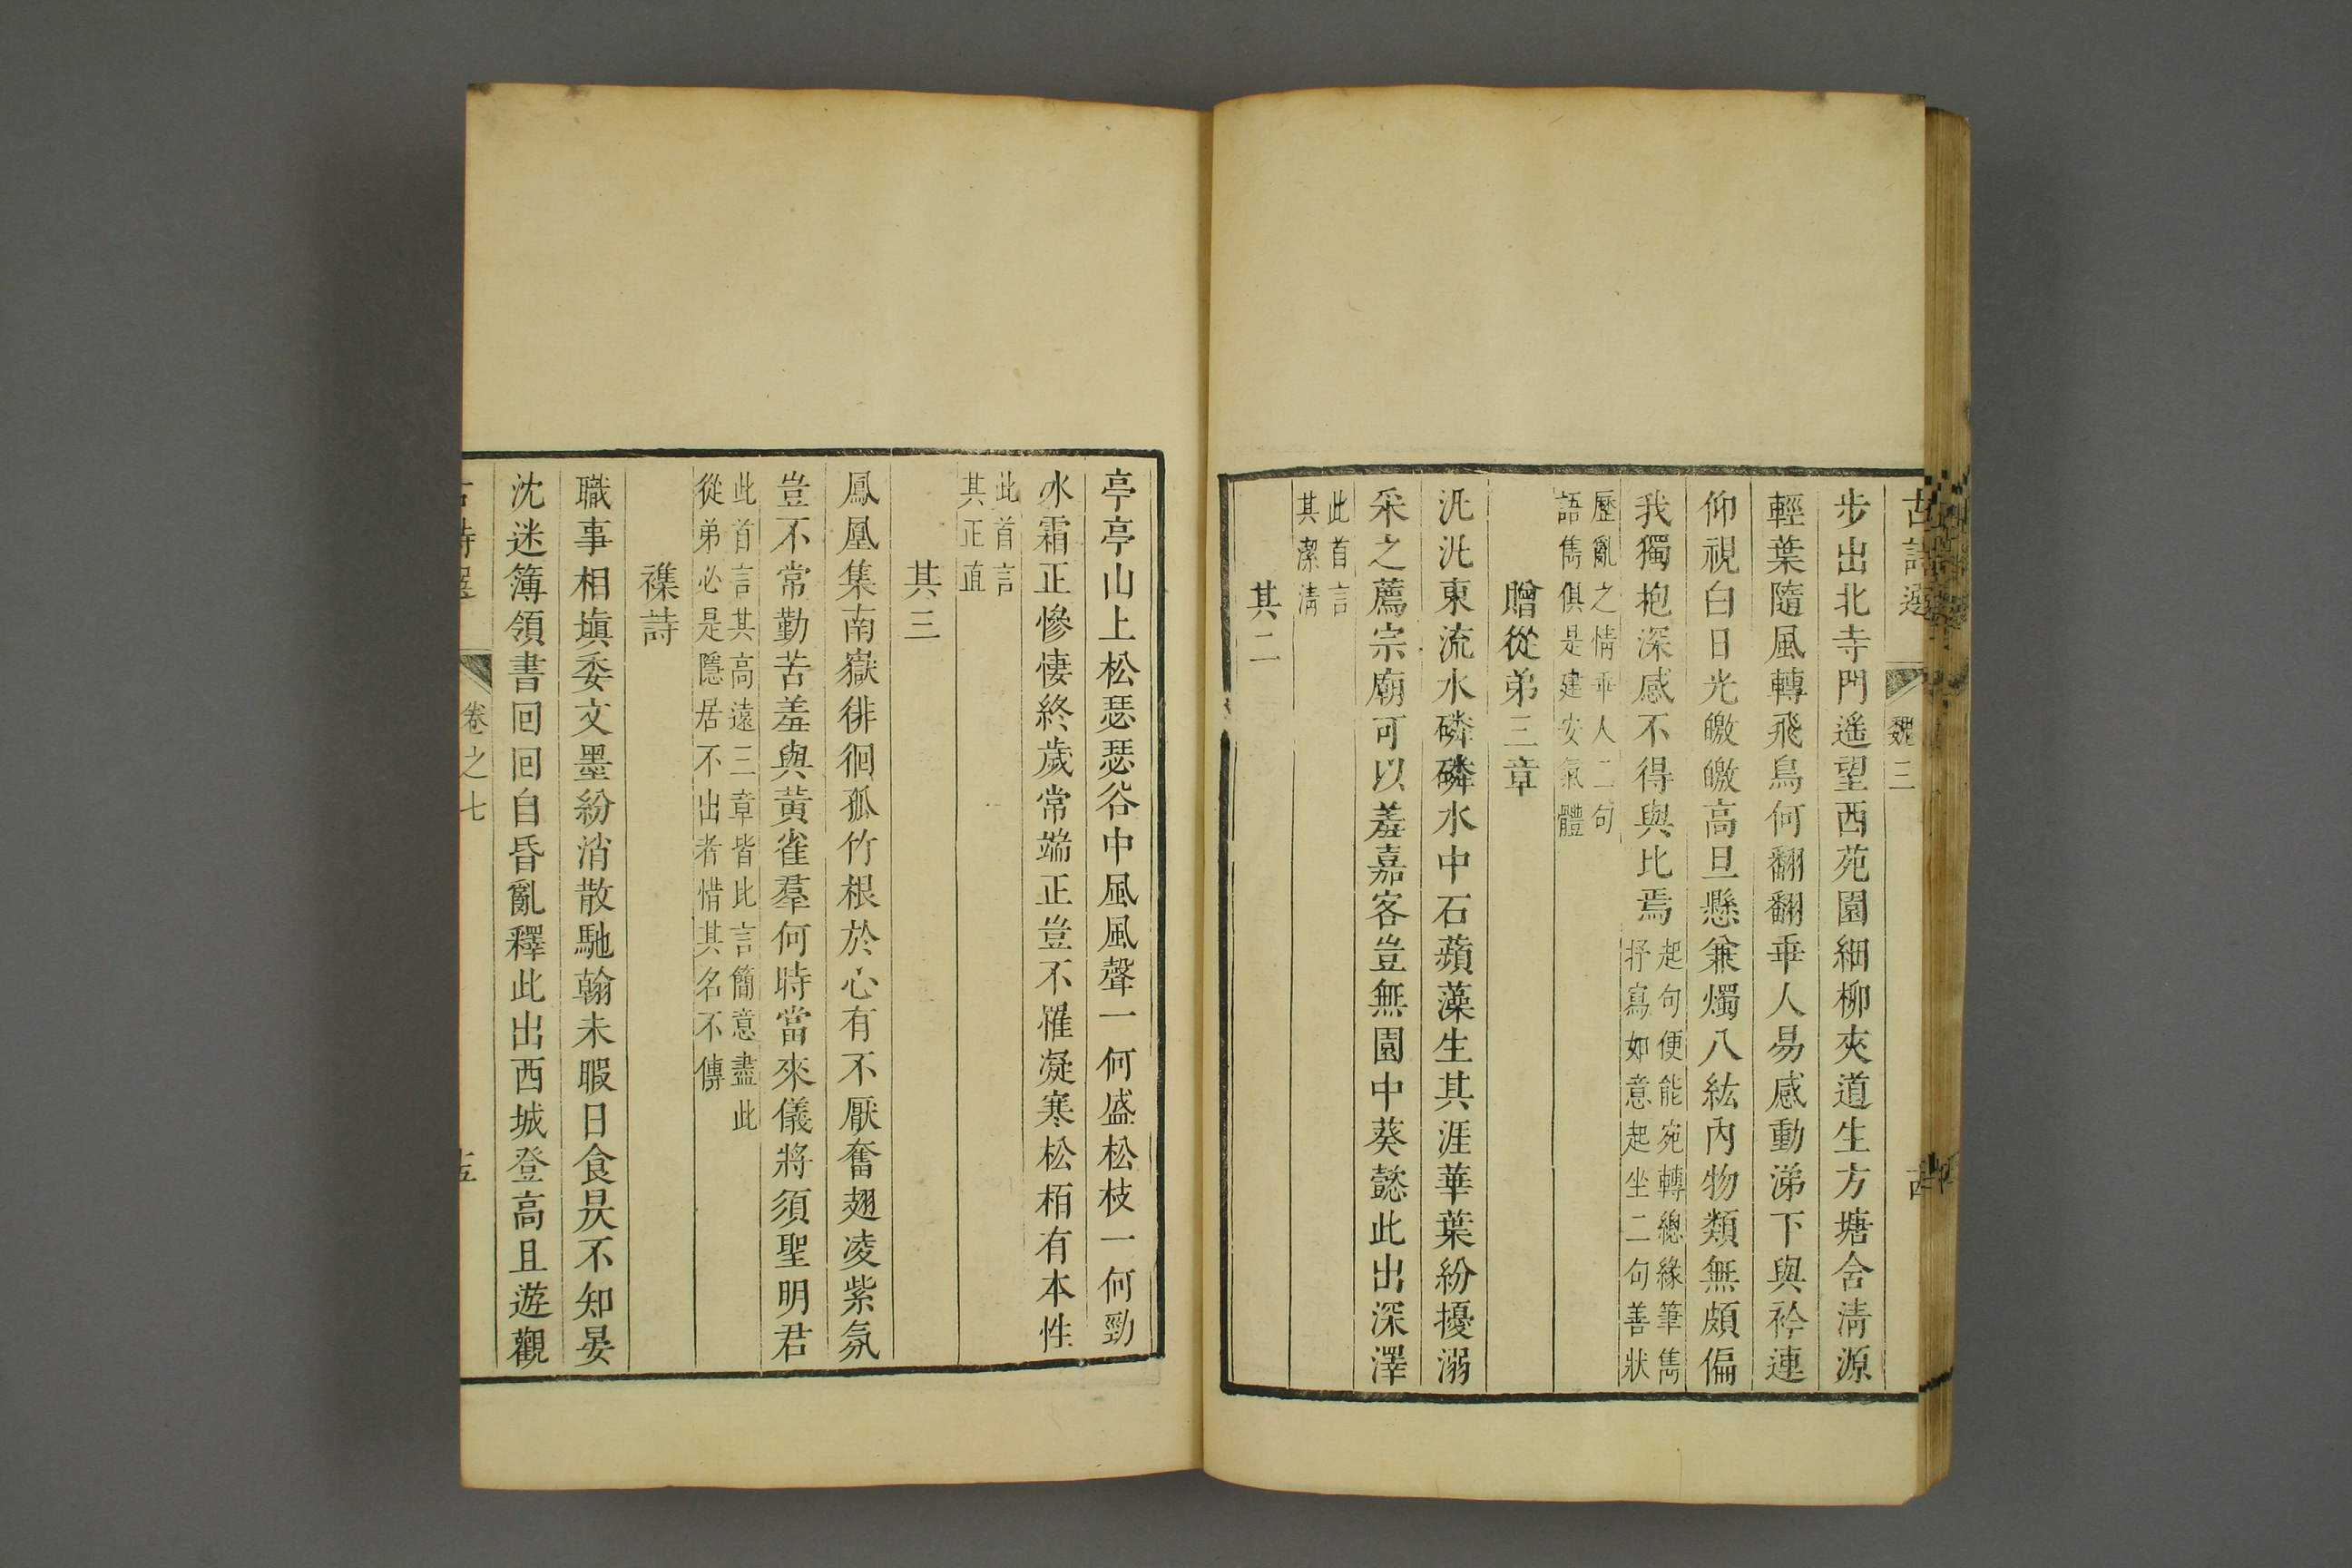 古詩選 魏三
步出北寺門遙望西苑園細柳夾道生方塘含淸源
輕葉隨風轉飛鳥何翻翻乖人易感動涕下與衿連
仰視白日光皦皦高且懸兼燭八紘內物類無頗偏
我獨抱深感不得與比焉起句便能宛轉總緣筆雋
抒寫如意起坐二句善狀
歷亂之情乖人二句
語雋俱是建安氣體
贈從弟三章
汎汎東流水磷磷水中石蘋藻生其涯華葉紛擾溺
采之薦宗廟可以羞嘉客豈無園中葵懿此出深澤
此首言
其潔淸
其二
亭亭山上松瑟瑟谷中風風聲一何盛松枝一何勁
冰霜正慘悽終歲常端正豈不罹凝寒松栢有本性
此首言
其正直
其三
鳳凰集南嶽徘徊孤竹根於心有不厭奮翅凌紫氛
豈不常勤苦羞與黃雀羣何時當來儀將須聖明君
此首言其高遠三章皆比言簡意盡此
從弟必是隱居不出者惜其名不傳
襍詩
職事相塡委文墨紛消散馳翰未暇日食昃不知晏
沈迷簿領書回回自昏亂釋此出西城登高且遊觀
卷之七